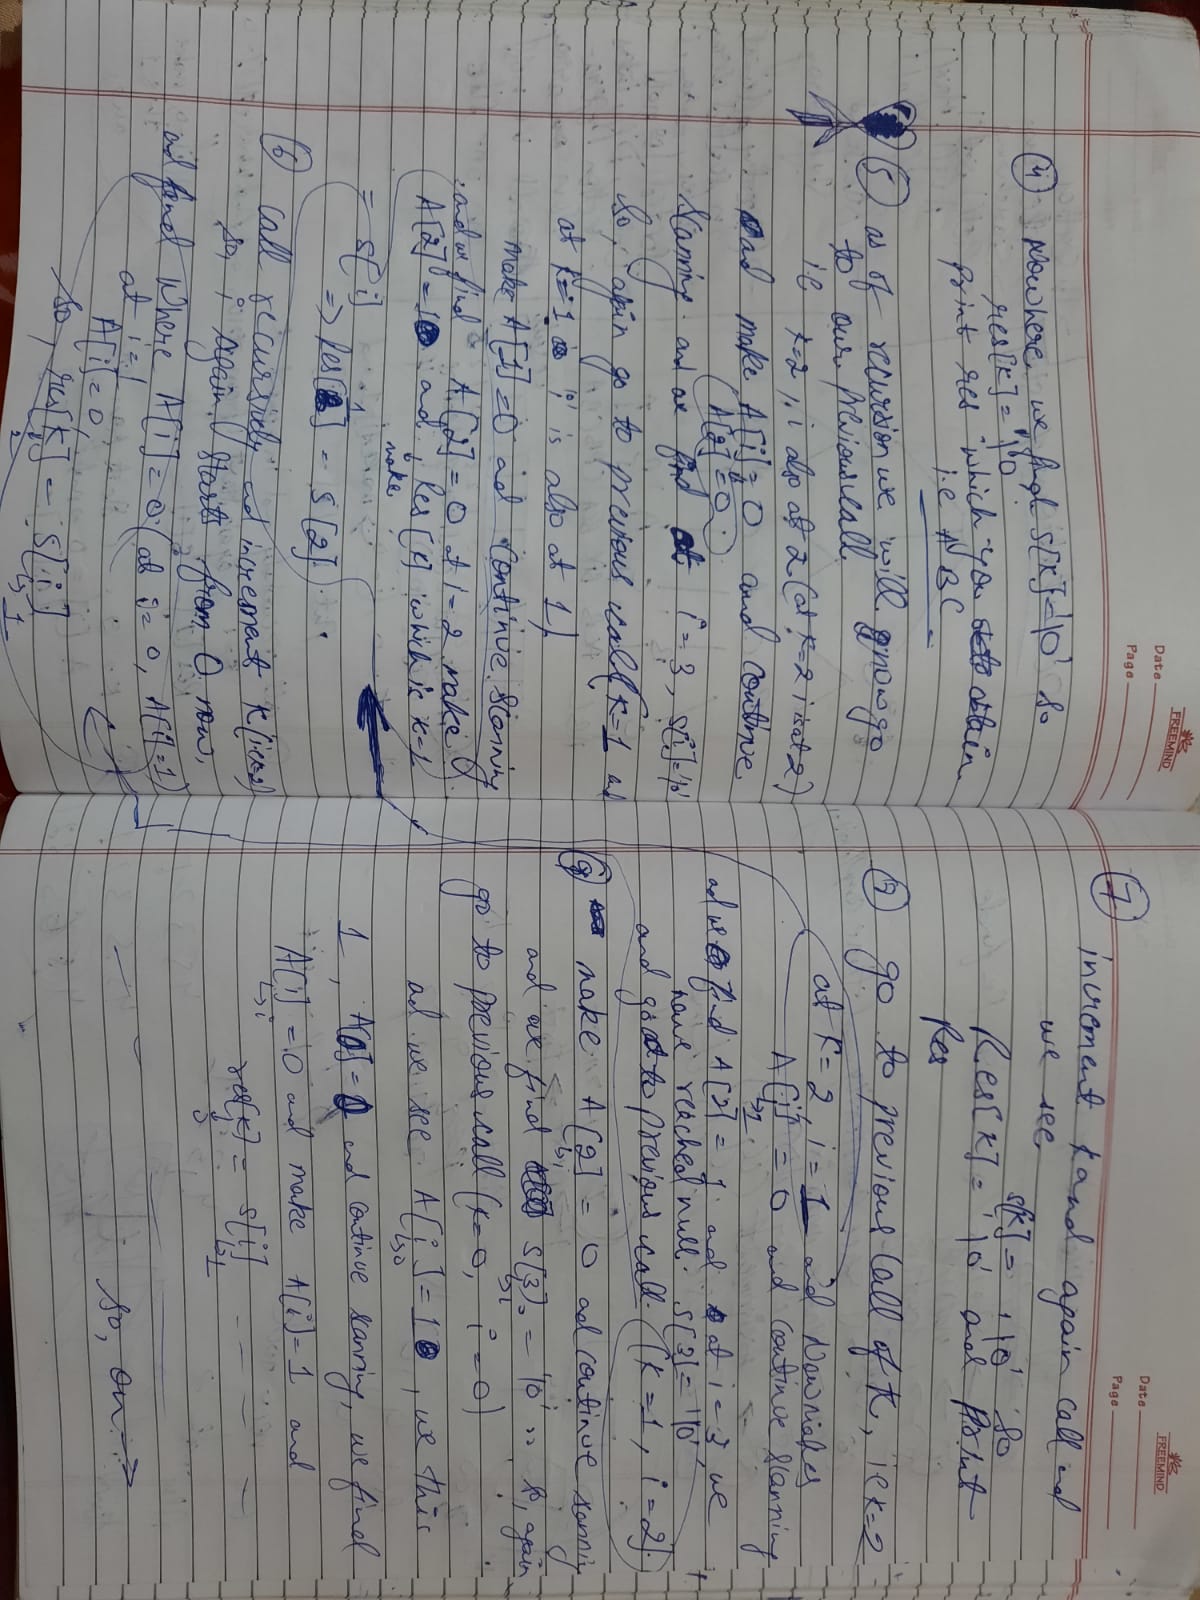 FREEMIND
Date
Page
(4) Nowhere we find s[K]='\0' so
res[K]='\0'
print res which you obtain
i.e ABC
(5) as of recursion we will now go
to our previous call.
ie K=2, i also at 2 (at K=2 i is at 2)
ad make A[i]=0 and continue
A[2]=0
Scanning and we find at i=3, s[i]='\0'
So, again go to previous call (K=1 and
at K=1 'i' is also at 1)
make A[1]=0 ad continue scanning
and we find A[2]=0 at i=2 make
A[2]=1 and make Res[K] which is K=1
= s[i]
=> Res[1] = S[2]
(6) call recursively ad increment K(i.e K=2)
so, i again starts from 0 now,
ad find where A[i]=0 (at i=0, A[i]=1)
at i=1
A[i]=0,
so, res[K] = s[i]
2 1
FREEMIND
Date
Page
(7) increment K and again call ad
we see
s[K] = '\0' so
Res[K] = '\0' and print
Res
go to previous call of K, ie K=2
at K=2, i=1 and Now makes
A[i] = 0 and continue scanning
1
ad we find A[2]=1 and at i=3 we
have reached null. s[3]='\0'
and go to previous call. (K=1, i=2)
make A[2] = 0 ad continue scanning
i
and we find s[3] = '\0' so, again
i
go to previous call (K=0, i=0)
ad we see A[i]=1, we this
0
1, A[0]=0 and continue scanning, we find
A[i]=0 and make A[i]=1 and
res[K] = s[i]
1
so, on →